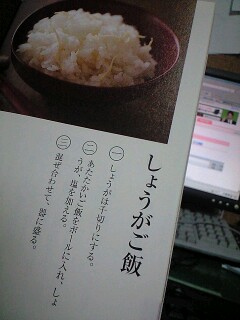 しょうがご飯
㊀ しょうがは千切りにする。
㊁ あたたかいご飯をボールに入れ、しょ
うが、塩を加える。
㊂ 混ぜ合わせて、器に盛る。